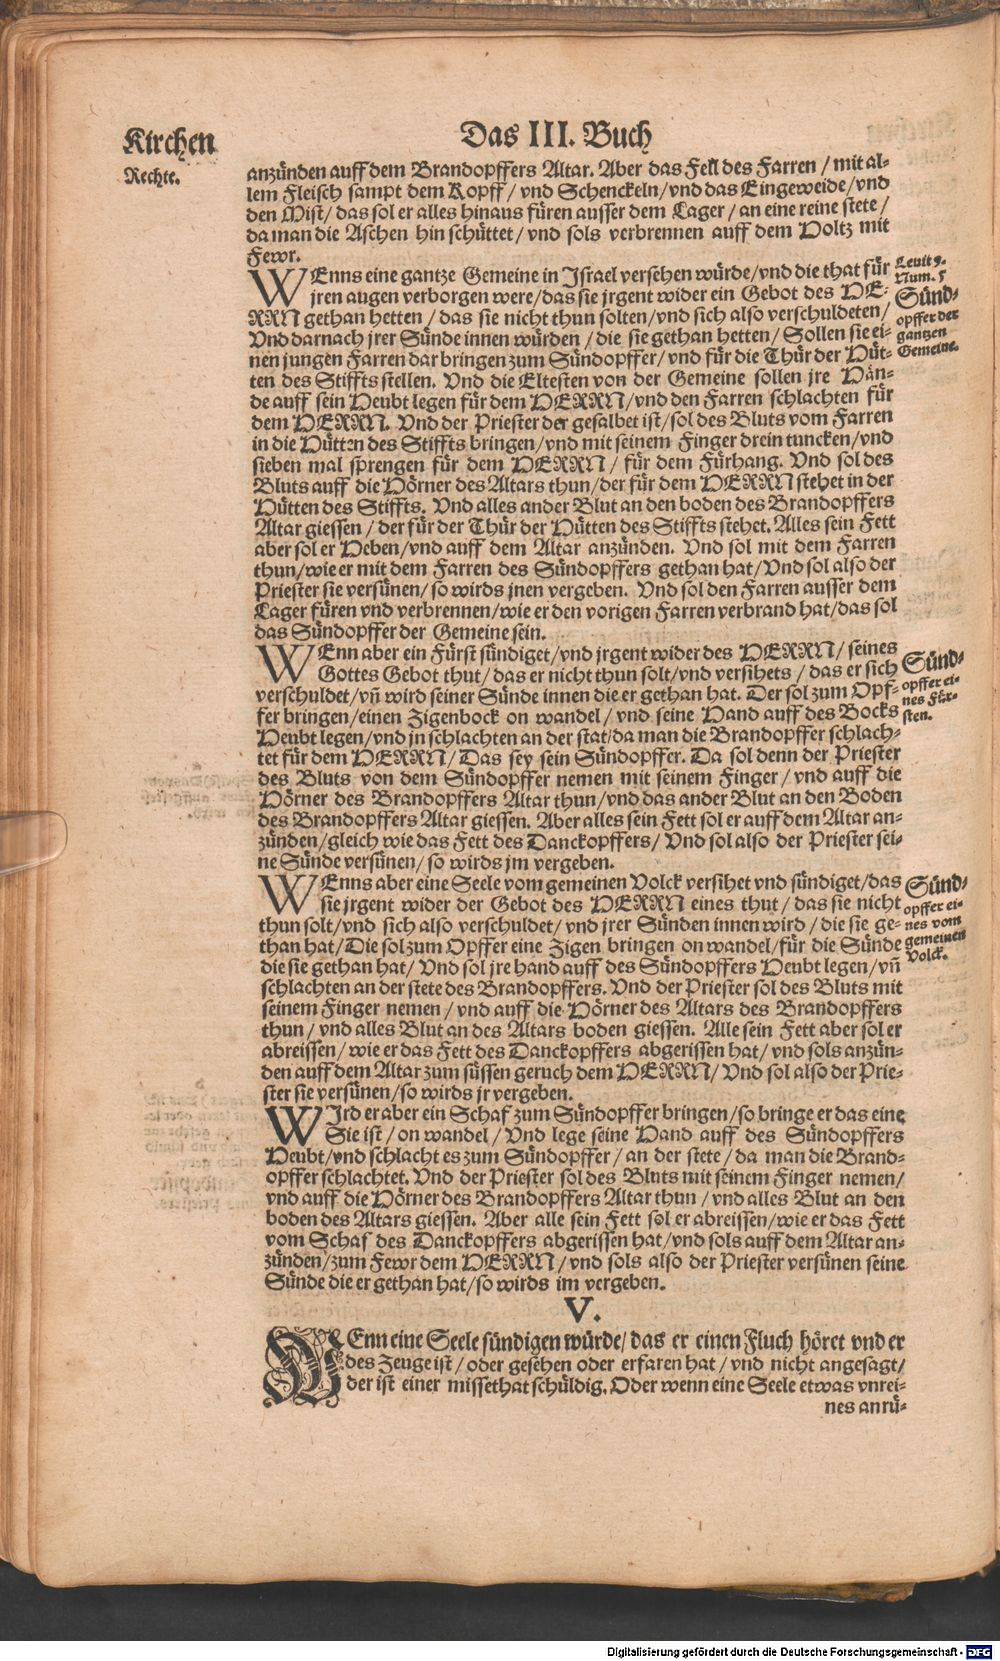 Kirchen
Rechte.
Das III. Buch
anzünden auff dem Brandopffers Altar. Aber das Fell des Farren / mit al-
lem Fleisch sampt dem Kopff / vnd Schenckeln / vnd das Eingeweide / vnd
den Mist / das sol er alles hinaus füren ausser dem Lager / an eine reine stete /
da man die Aschen hin schüttet / vnd sols verbrennen auff dem Holtz mit
Fewr.
WEnns eine gantze Gemeine in Israel versehen würde / vnd die that für
jren augen verborgen were / das sie jrgent wider ein Gebot des HE-
RRN gethan hetten / das sie nicht thun solten / vnd sich also verschuldeten /
Vnd darnach jrer Sünde innen würden / die sie gethan hetten / Sollen sie ei-
nen jungen Farren dar bringen zum Sündopffer / vnd für die Thür der Hüt-
ten des Stiffts stellen. Vnd die Eltesten von der Gemeine sollen jre Hän-
de auff sein Heubt legen für dem HERRN / vnd den Farren schlachten für
dem HERRN. Vnd der Priester der gesalbet ist / sol des Bluts vom Farren
in die Hütten des Stiffts bringen / vnd mit seinem Finger drein tuncken / vnd
sieben mal sprengen für dem HERRN / für dem Fürhang. Vnd sol des
Bluts auff die Hörner des Altars thun / der für dem HERRN stehet in der
Hütten des Stiffts. Vnd alles ander Blut an den boden des Brandopffers
Altar giessen / der für der Thür der Hütten des Stiffts stehet. Alles sein Fett
aber sol er Heben / vnd auff dem Altar anzünden. Vnd sol mit dem Farren
thun / wie er mit dem Farren des Sündopffers gethan hat / Vnd sol also der
Priester sie versünen / so wirds jnen vergeben. Vnd sol den Farren ausser dem
Lager füren vnd verbrennen / wie er den vorigen Farren verbrand hat / das sol
das Sündopffer der Gemeine sein.
Levit 9.
Num. 5
Sünd-
opffer der
gantzen
Gemeine.
WEnn aber ein Fürst sündiget / vnd jrgent wider des HERRN / seines
Gottes Gebot thut / das er nicht thun solt / vnd versihets / das er sich
verschuldet / vñ wird seiner Sünde innen die er gethan hat. Der sol zum Opf-
fer bringen / einen Zigenbock on wandel / vnd seine Hand auff des Bocks
Heubt legen / vnd jn schlachten an der stat / da man die Brandopffer schlach-
tet für dem HERRN / Das sey sein Sündopffer. Da sol denn der Priester
des Bluts von dem Sündopffer nemen mit seinem Finger / vnd auff die
Hörner des Brandopffers Altar thun / vnd das ander Blut an den Boden
des Brandopffers Altar giessen. Aber alles sein Fett sol er auff dem Altar an-
zünden / gleich wie das Fett des Danckopffers / Vnd sol also der Priester sei-
ne Sünde versünen / so wirds jm vergeben.
Sünd-
opffer ei-
nes Für-
sten.
WEnns aber eine Seele vom gemeinen Volck versihet vnd sündiget / das
sie jrgent wider der Gebot des HERRN eines thut / das sie nicht
thun solt / vnd sich also verschuldet / vnd jrer Sünden innen wird / die sie ge-
than hat / Die sol zum Opffer eine Zigen bringen on wandel / für die Sünde
die sie gethan hat / Vnd sol jre hand auff des Sündopffers Heubt legen / vñ
schlachten an der stete des Brandopffers. Vnd der Priester sol des Bluts mit
seinem Finger nemen / vnd auff die Hörner des Altars des Brandopffers
thun / vnd alles Blut an des Altars boden giessen. Alle sein Fett aber sol er
abreissen / wie er das Fett des Danckopffers abgerissen hat / vnd sols anzün-
den auff dem Altar zum süssen geruch dem HERRN / Vnd sol also der Prie-
ster sie versünen / so wirds jr vergeben.
Sünd-
opffer ei-
nes vom
gemeinen
Volck.
WIrd er aber ein Schaf zum Sündopffer bringen / so bringe er das eine
Sie ist / on wandel / Vnd lege seine Hand auff des Sündopffers
Heubt / vnd schlacht es zum Sündopffer / an der stete / da man die Brand-
opffer schlachtet. Vnd der Priester sol des Bluts mit seinem Finger nemen /
vnd auff die Hörner des Brandopffers Altar thun / vnd alles Blut an den
boden des Altars giessen. Aber alle sein Fett sol er abreissen / wie er das Fett
vom Schaf des Danckopffers abgerissen hat / vnd sols auff dem Altar an-
zünden / zum Fewr dem HERRN / vnd sols also der Priester versünen seine
Sünde die er gethan hat / so wirds im vergeben.
V.
WEnn eine Seele sündigen würde / das er einen Fluch höret vnd er
des Zeuge ist / oder gesehen oder erfaren hat / vnd nicht angesagt /
der ist einer missethat schüldig. Oder wenn eine Seele etwas vnrei-
nes anrü-
Digitalisierung gefördert durch die Deutsche Forschungsgemeinschaft - DFG